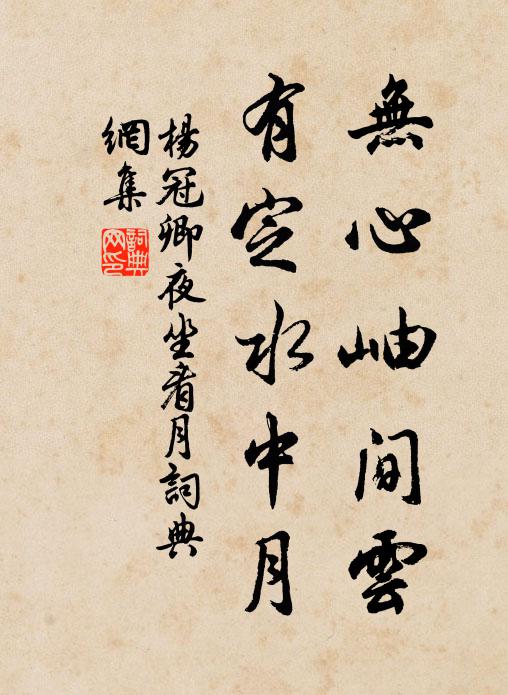 無心岫間雲
有定水中月
楊冠卿夜坐看月詞典
網集
詞典
網印